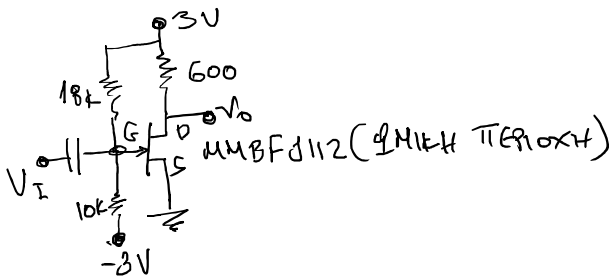 3V
600
18k
G
D
Vo
S
MMBFJ112 (ΩΜΙΚΗ ΠΕΡΙΟΧΗ)
VI
10K
-3V